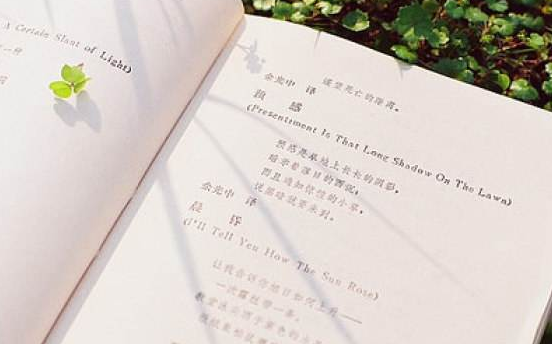 A Certain Slant of Light)
一种
遥望死亡的距离。
余光中 译
预 感
(Presentiment Is That Long Shadow On The Lawn)
预感是草地上长长的阴影,
暗示着落日的西沉;
而且通知惊惶的小草,
说黑暗就要来到。
余光中 译
晨 昏
(I'll Tell You How The Sun Rose)
让我告诉你旭日如何上升——
一次露一条。